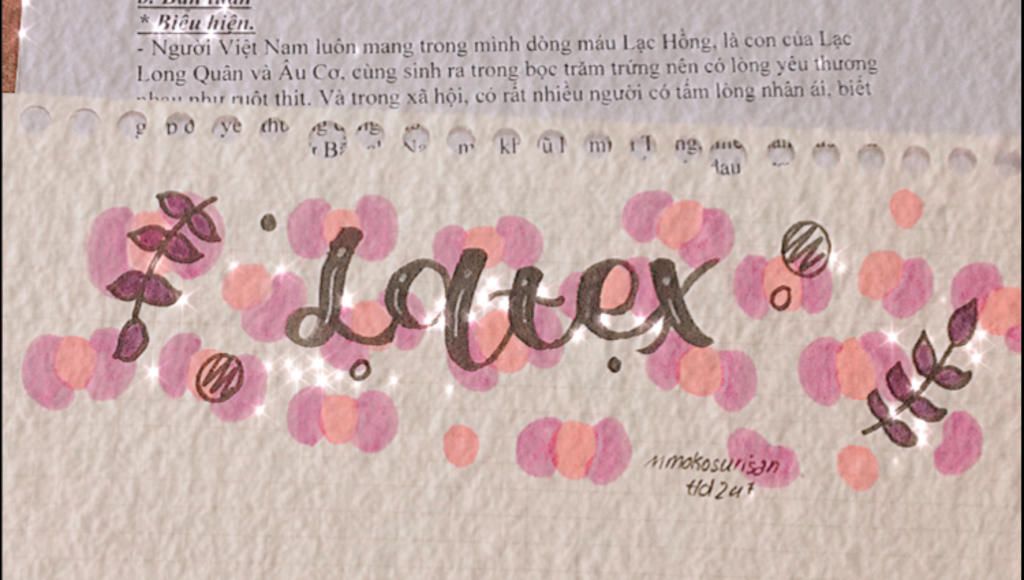 b. Bàn luận
* Biểu hiện.
- Người Việt Nam luôn mang trong mình dòng máu Lạc Hồng, là con của Lạc
Long Quân và Âu Cơ, cùng sinh ra trong bọc trăm trứng nên có lòng yêu thương
nhau như ruột thịt. Và trong xã hội, có rất nhiều người có tấm lòng nhân ái, biết
Latex
mmokosurisan